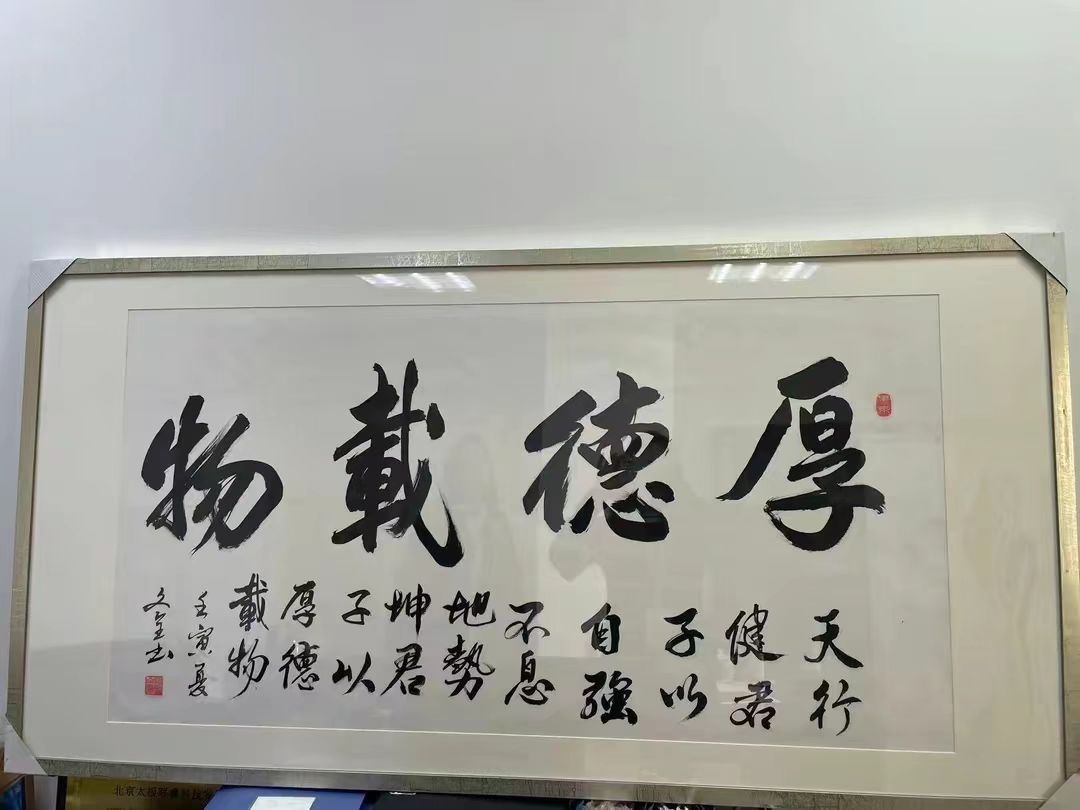 厚德載物
天行
健君
子以
自強
不息
地勢
坤君
子以
厚德
載物
壬寅夏